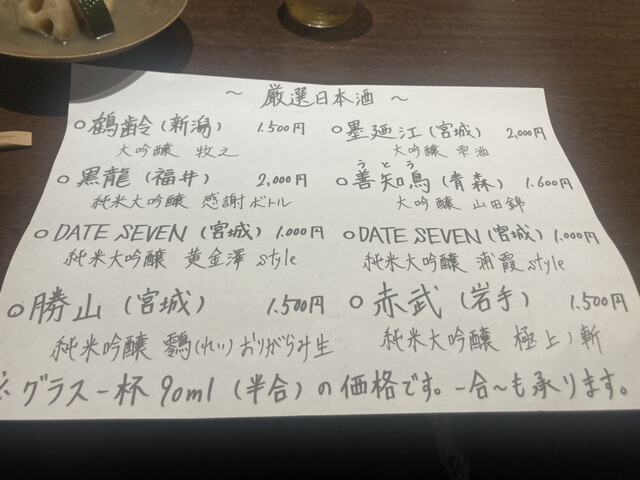 ～ 厳選日本酒 ～
○鶴齢(新潟) 1.500円
大吟醸 牧之
○墨廼江(宮城) 2,000円
大吟醸 雫酒
○黒龍(福井) 2,000円
純米大吟醸 感謝ボトル
うとう
○善知鳥(青森) 1.600円
大吟醸 山田錦
○DATE SEVEN(宮城) 1.000円
純米大吟醸 黄金澤 style
○DATE SEVEN(宮城) 1.000円
純米大吟醸 浦霞 style
○勝山(宮城) 1.500円
純米吟醸 鴒(れい)おりがらみ生
○赤武(岩手) 1.500円
純米大吟醸 極上ノ斬
※グラス一杯90ml(半合)の価格です。一合～も承ります。